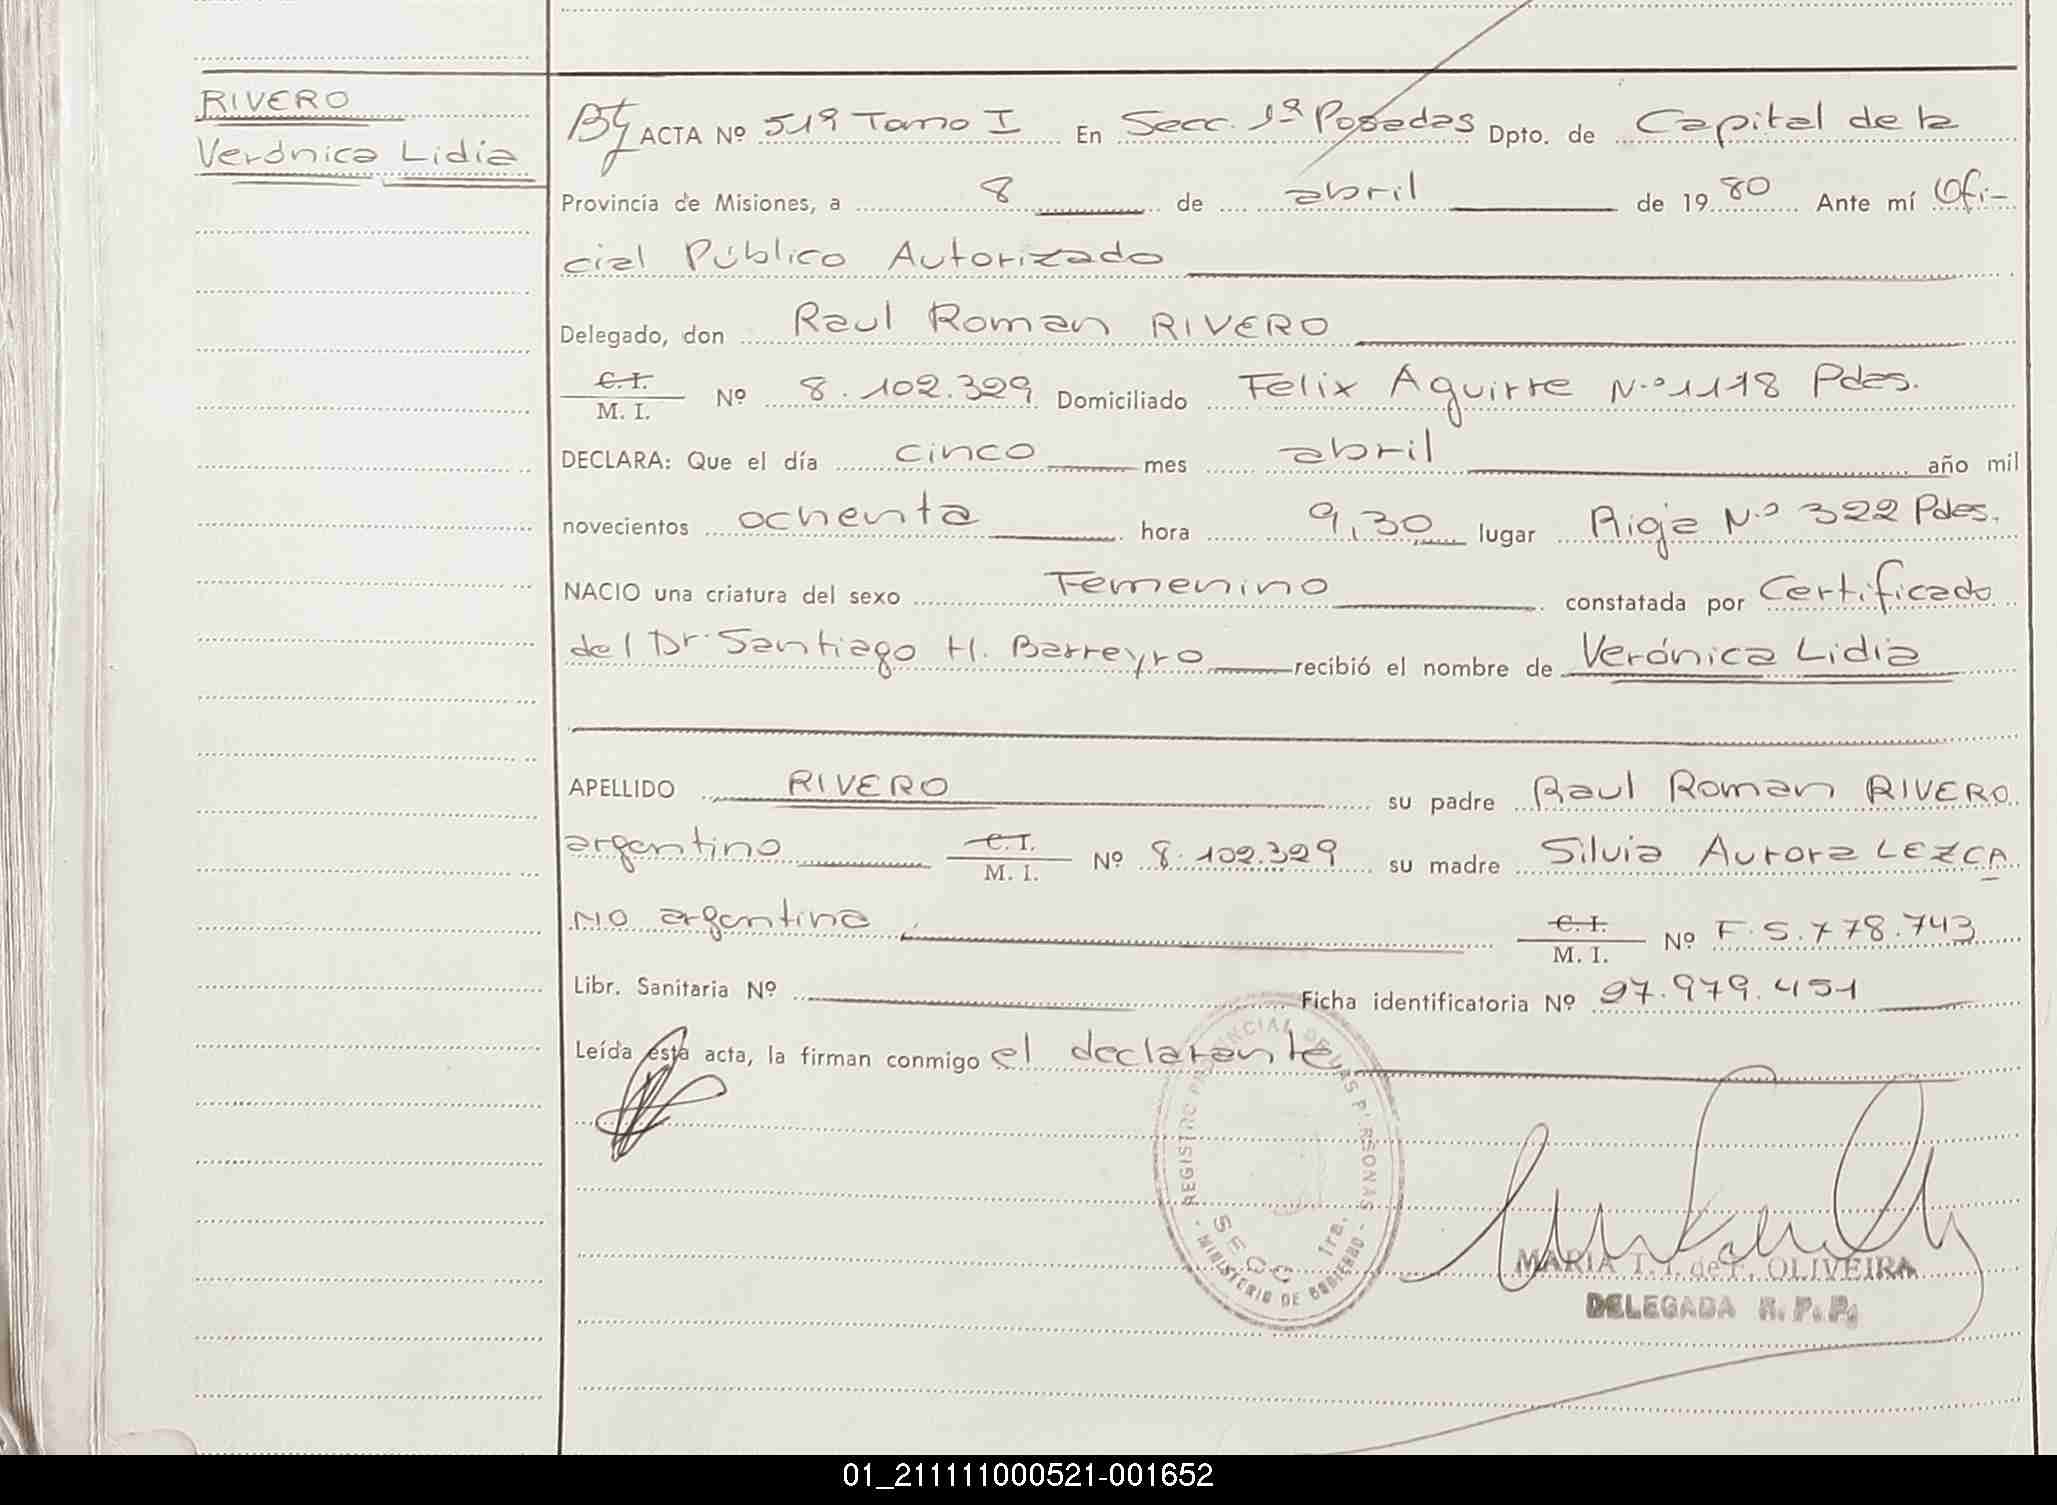 RIVERO
Verónica Lidia
ACTA Nº 519 Tomo I En Secc. 1ª Posadas Dpto. de Capital de la
Provincia de Misiones, a 8 de abril de 1980 Ante mí Ofi-
cial Público Autorizado
Delegado, don Raul Roman RIVERO
C.I.
M. I. Nº 8.102.329 Domiciliado Felix Aguirre N.º 1118 Pdas.
DECLARA: Que el día cinco mes abril año mil
novecientos ochenta hora 9,30 lugar Rioja N.º 322 Pdas.
NACIO una criatura del sexo Femenino constatada por Certificado
del Dr. Santiago H. Barreyro recibió el nombre de Verónica Lidia
APELLIDO RIVERO su padre Raul Roman RIVERO
argentino C.I.
M. I. Nº 8.102.329 su madre Silvia Aurora LEZCA
NO argentina C.I.
M. I. Nº F.5.778.743
Libr. Sanitaria Nº Ficha identificatoria Nº 27.979.451
Leída esta acta, la firman conmigo el declarante
REGISTRO PROVINCIAL DE LAS PERSONAS
SECC 1ra.
- MINISTERIO DE GOBIERNO -
MARIA T. I. de F. OLIVEIRA
DELEGADA R. P. P.
01_211111000521-001652